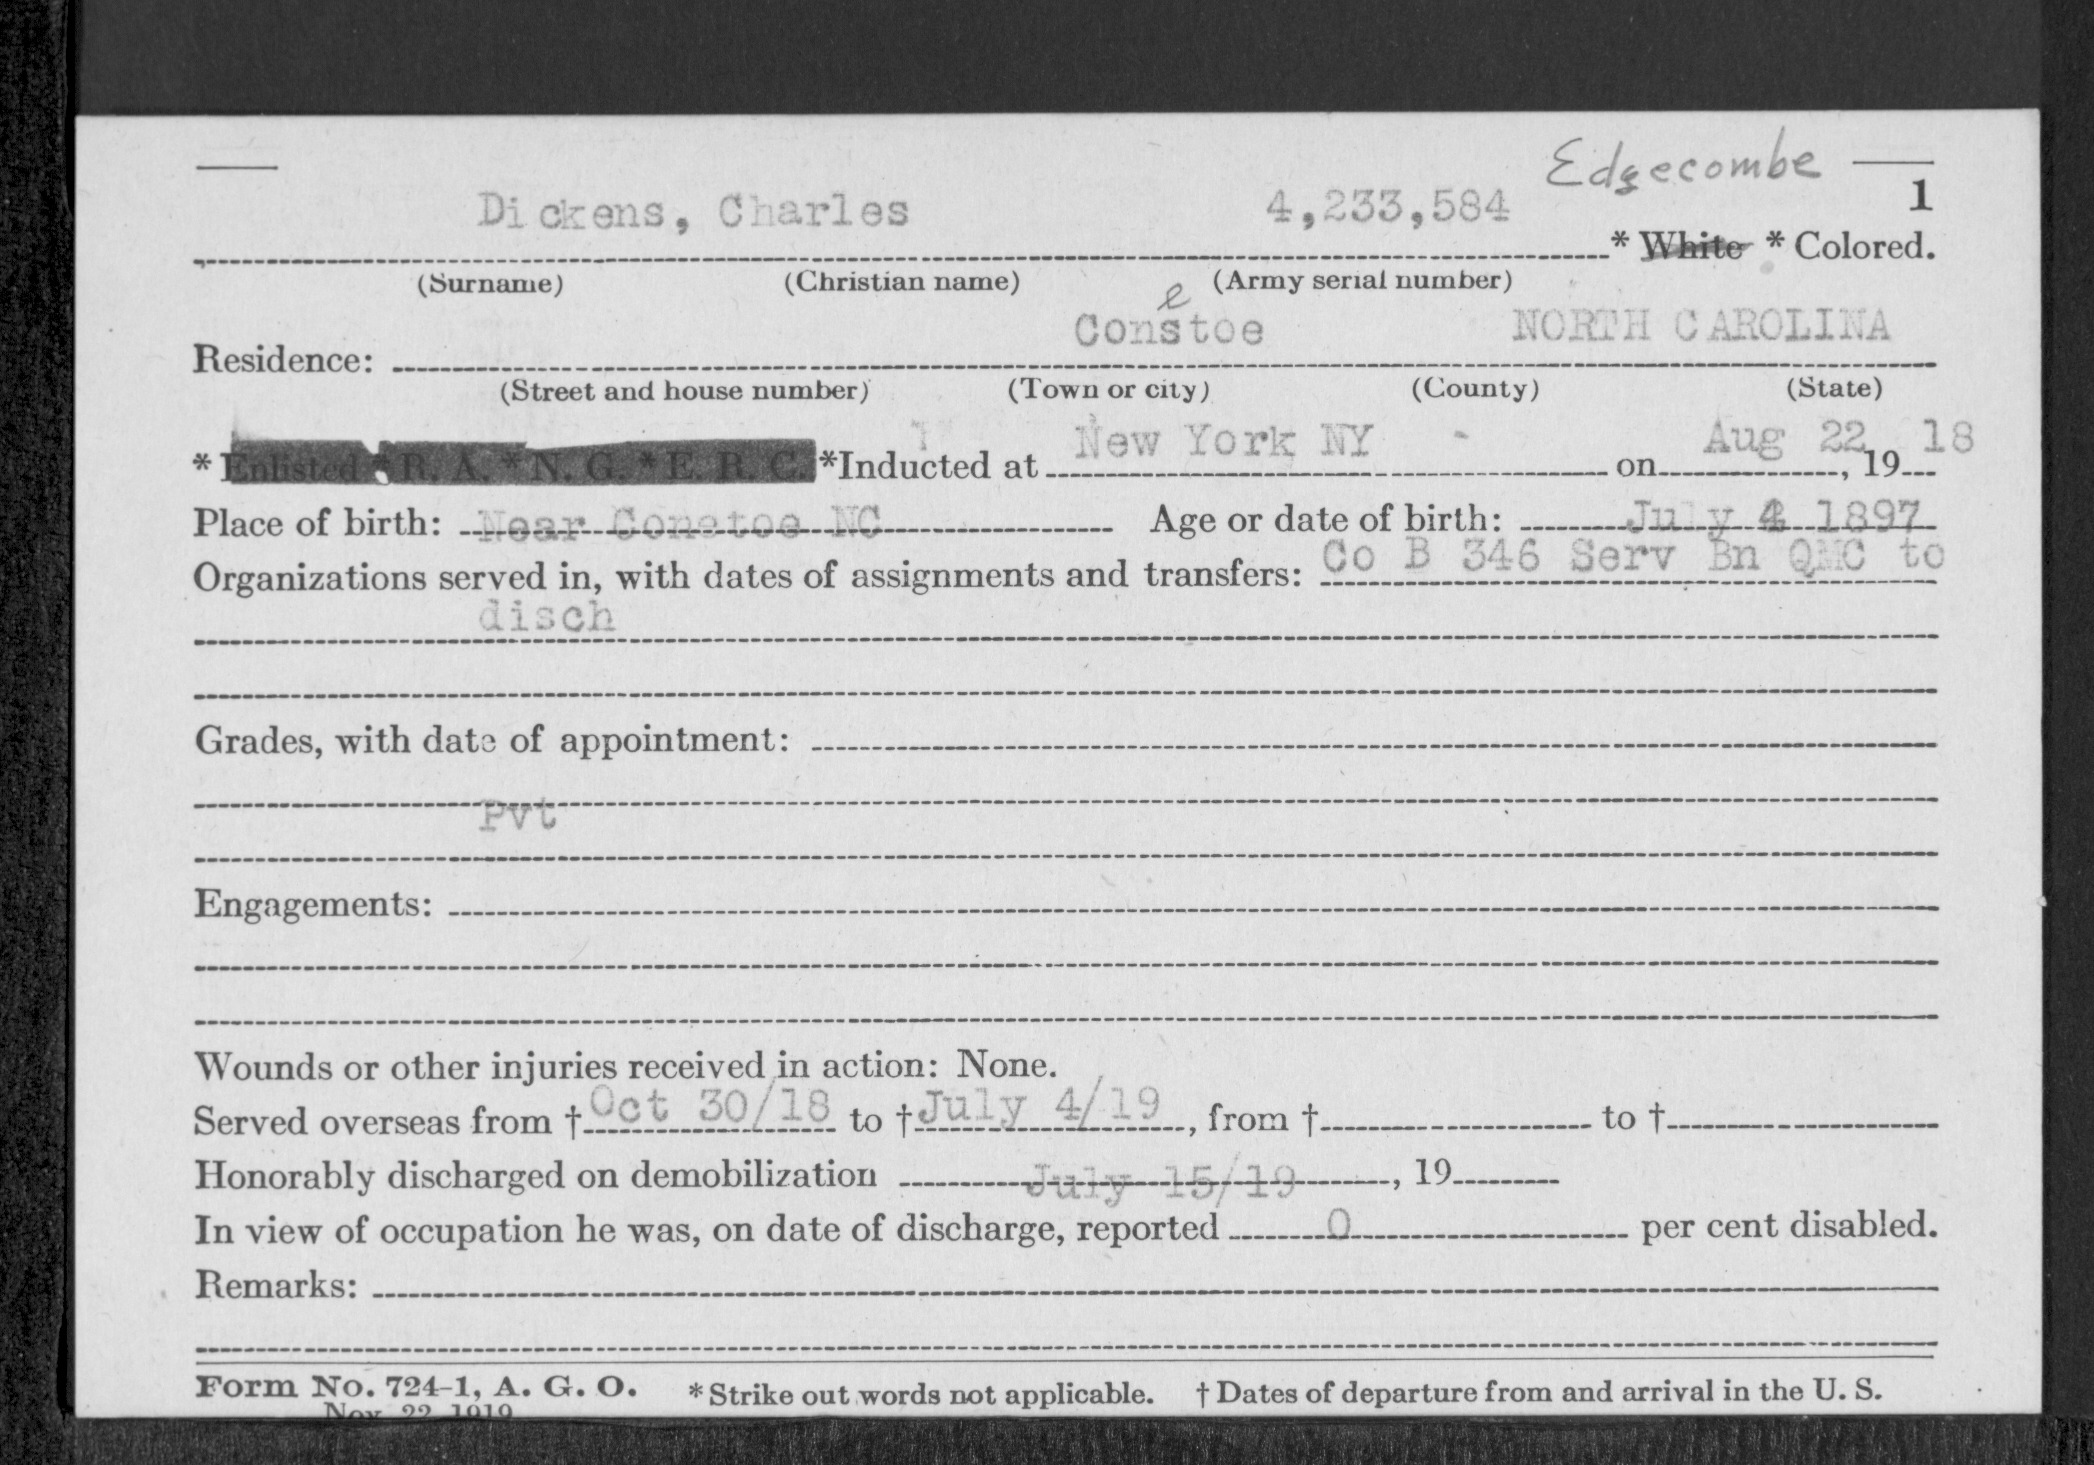 Edgecombe
1
Dickens, Charles 4,233,584 * White * Colored.
(Surname) (Christian name) (Army serial number)
e
Residence: Constoe NORTH CAROLINA
(Street and house number) (Town or city) (County) (State)
* Enlisted * R. A. * N. G. * E. R. C. *Inducted at New York NY - on Aug 22, 19 18
Place of birth: Near Conetoe NC Age or date of birth: July 4 1897
Organizations served in, with dates of assignments and transfers: Co B 346 Serv Bn QMC to
disch
Grades, with date of appointment:
Pvt
Engagements:
Wounds or other injuries received in action: None.
Served overseas from † Oct 30/18 to † July 4/19, from † to †
Honorably discharged on demobilization July 15/19, 19
In view of occupation he was, on date of discharge, reported 0 per cent disabled.
Remarks:
Form No. 724-1, A. G. O. * Strike out words not applicable. † Dates of departure from and arrival in the U. S.
Nov. 22, 1919